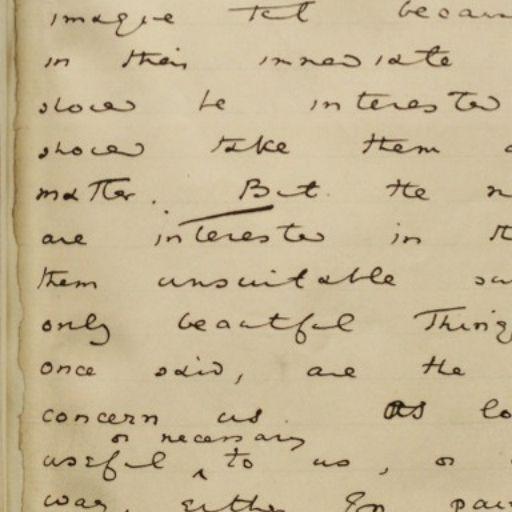 imagine that becau
in their immediate
should be interested
should take them
matter. But the
are interested in th
them unsuitable su
only beautiful Thing
once said, are the
concern us. As lo
or necessary
useful ^ to us, or
way, either for pai